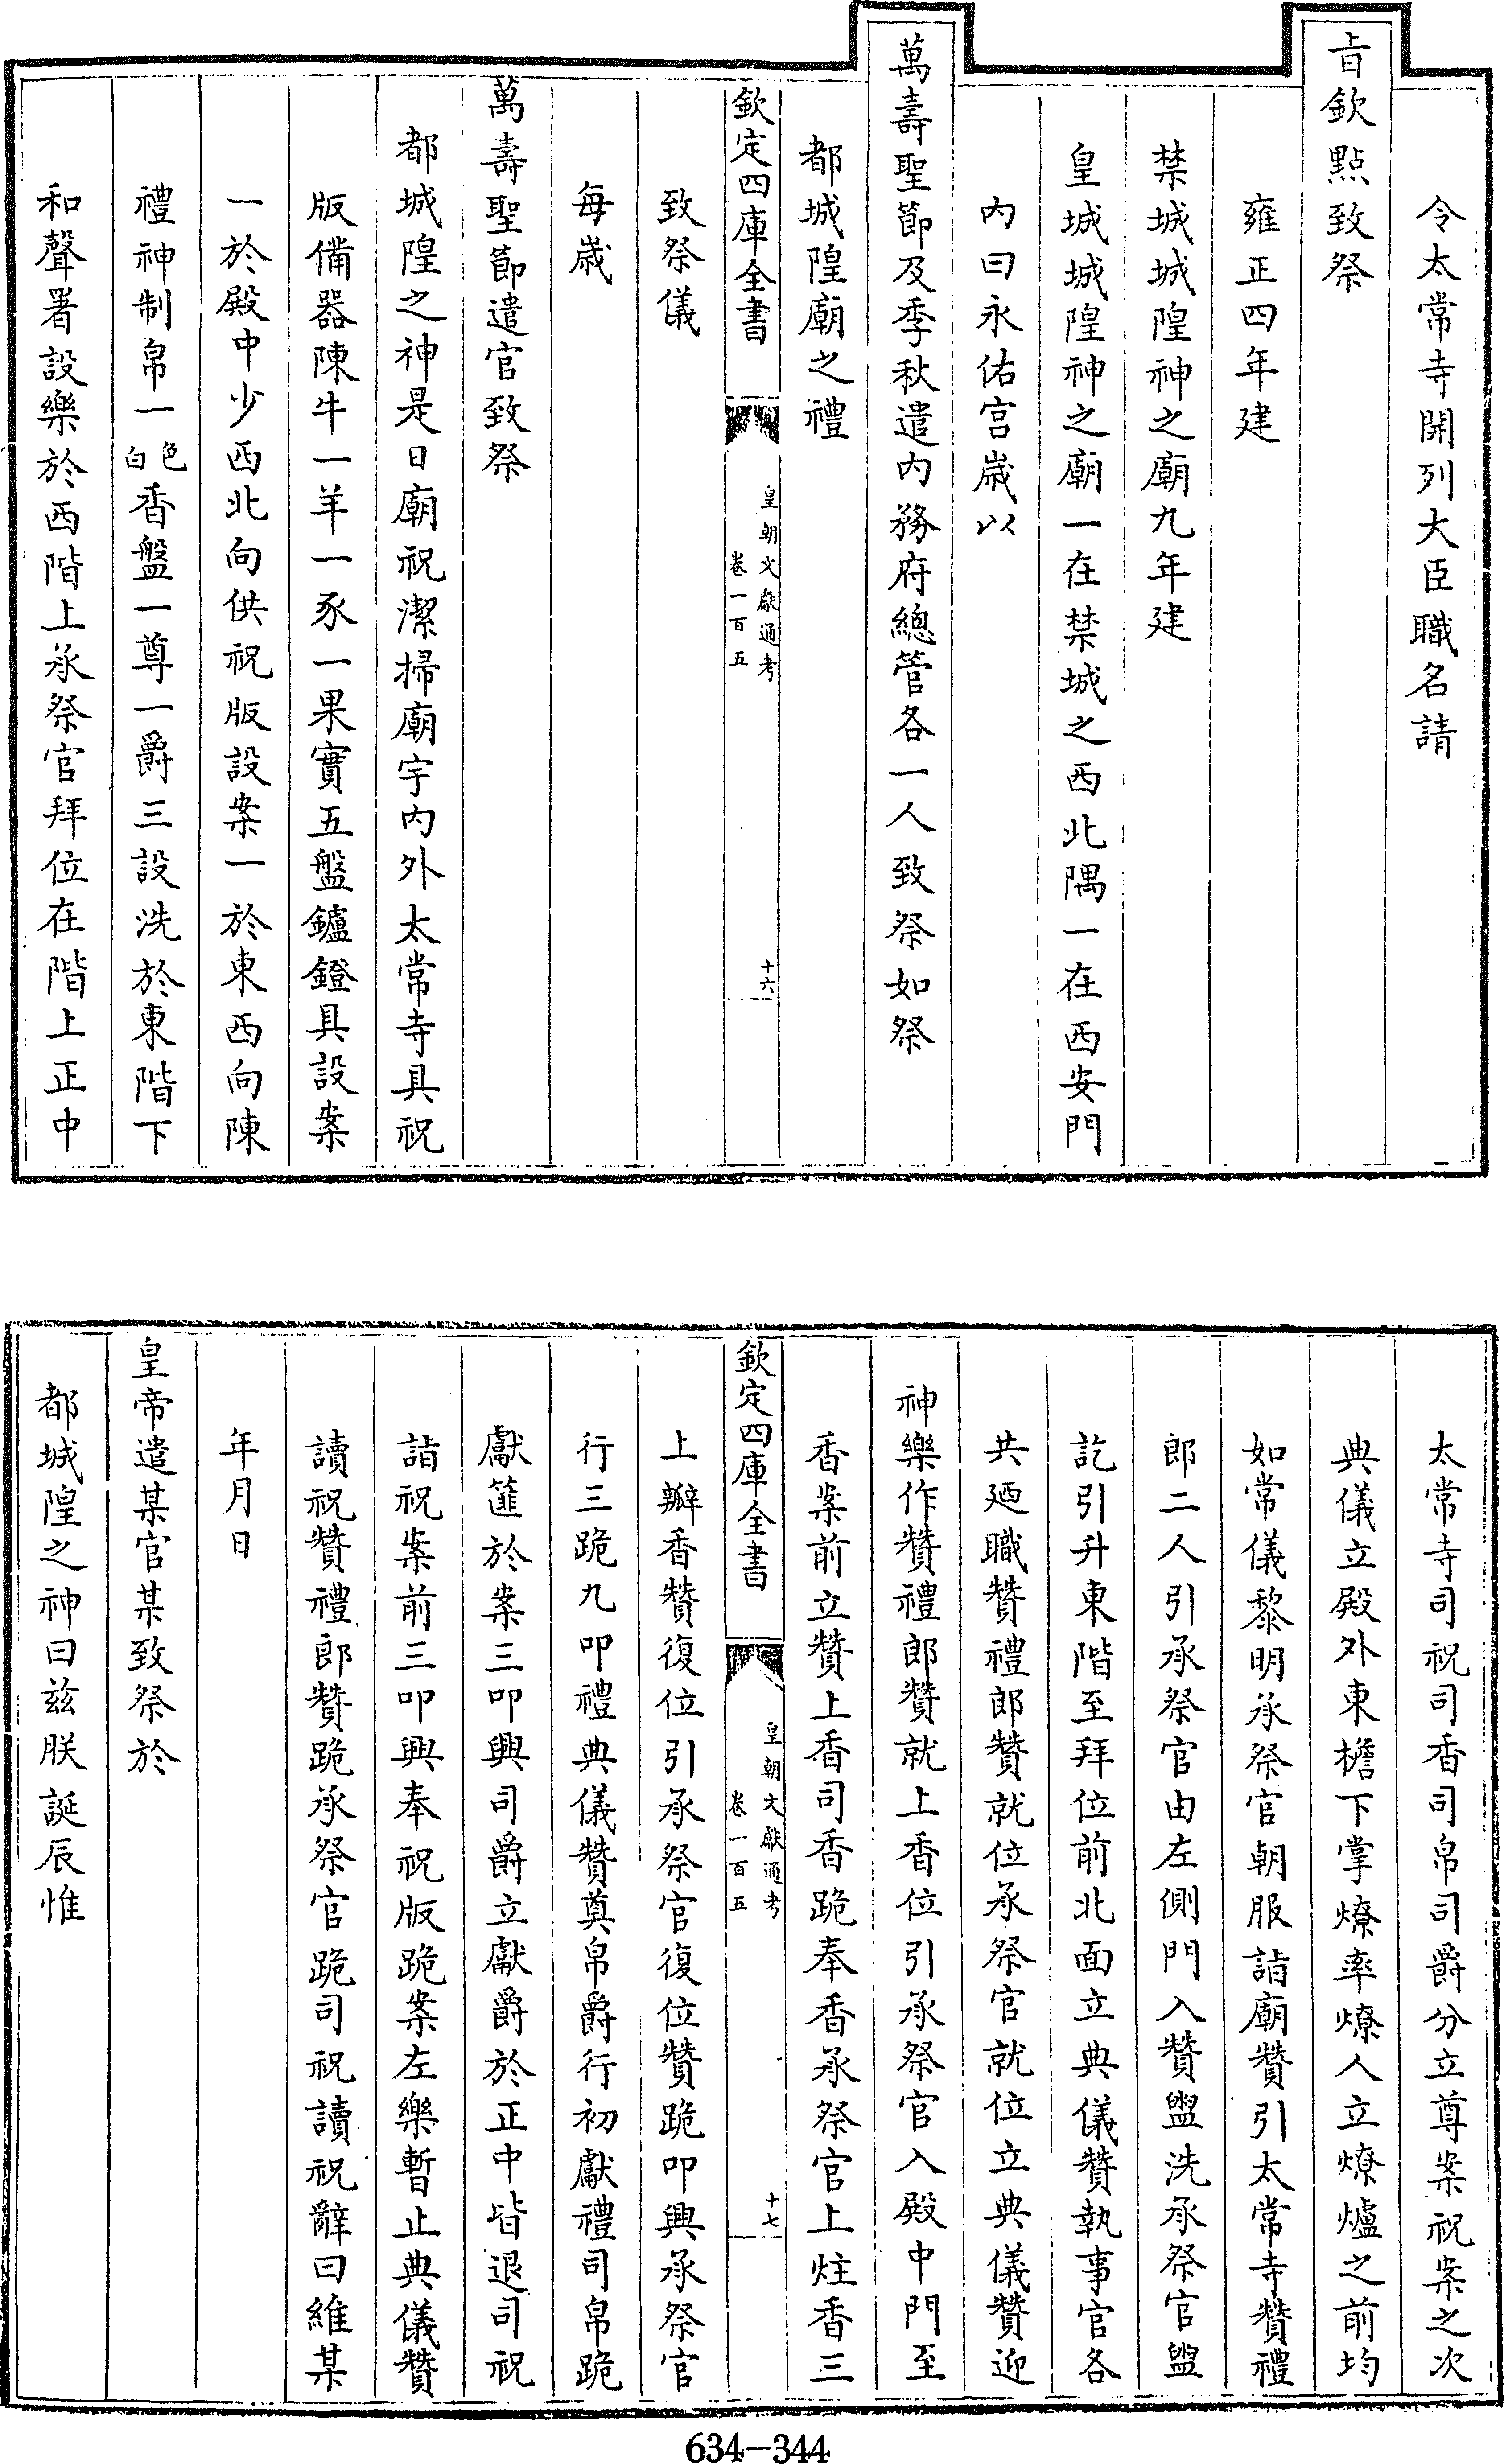 令太常寺開列大臣職名請
旨欽點致祭
雍正四年建
禁城城隍神之廟九年建
皇城城隍神之廟一在禁城之西北隅一在西安門
内曰永佑宫嵗以
萬壽聖節及季秋遣内務府總管各一人致祭如祭
都城隍廟之禮
欽定四庫全書
皇朝文獻通考
卷一百五
十六
致祭儀
每嵗
萬壽聖節遣官致祭
都城隍之神是日廟祝潔掃廟宇内外太常寺具祝
版備器陳牛一羊一豕一果實五盤鑪鐙具設案
一於殿中少西北向供祝版設案一於東西向陳
禮神制帛一色白香盤一尊一爵三設洗於東階下
和聲署設樂於西階上承祭官拜位在階上正中
太常寺司祝司香司帛司爵分立尊案祝案之次
典儀立殿外東檐下掌燎率燎人立燎爐之前均
如常儀黎明承祭官朝服詣廟贊引太常寺贊禮
郎二人引承祭官由左側門入贊盥洗承祭官盥
訖引升東階至拜位前北面立典儀贊執事官各
共廼職贊禮郎贊就位承祭官就位立典儀贊迎
神樂作贊禮郎贊就上香位引承祭官入殿中門至
香案前立贊上香司香跪奉香承祭官上炷香三
欽定四庫全書
皇朝文獻通考
卷一百五
十七
上瓣香贊復位引承祭官復位贊跪叩興承祭官
行三跪九叩禮典儀贊奠帛爵行初獻禮司帛跪
獻篚於案三叩興司爵立獻爵於正中皆退司祝
詣祝案前三叩興奉祝版跪案左樂暫止典儀贊
讀祝贊禮郎贊跪承祭官跪司祝讀祝辭曰維某
年月日
皇帝遣某官某致祭於
都城隍之神曰兹朕誕辰惟
634-344